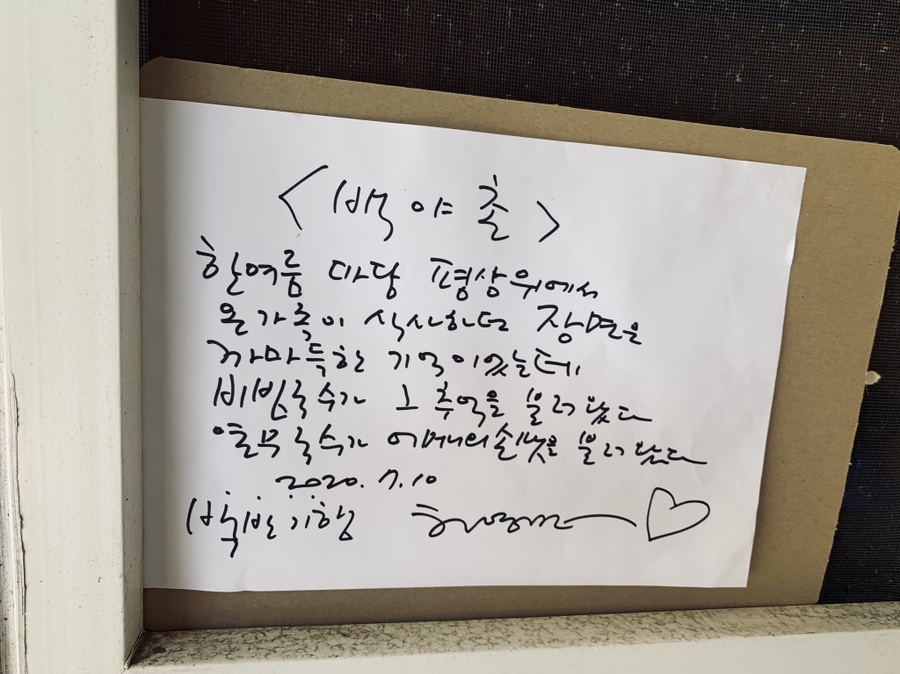 <백야촌>
한여름 마당 평상위에서
온가족이 식사하던 장면은
까마득한 기억이었는데
비빔국수가 그 추억을 불러왔다
열무국수가 어머니의 손맛을 불러왔다
2020. 7. 10
백반기행